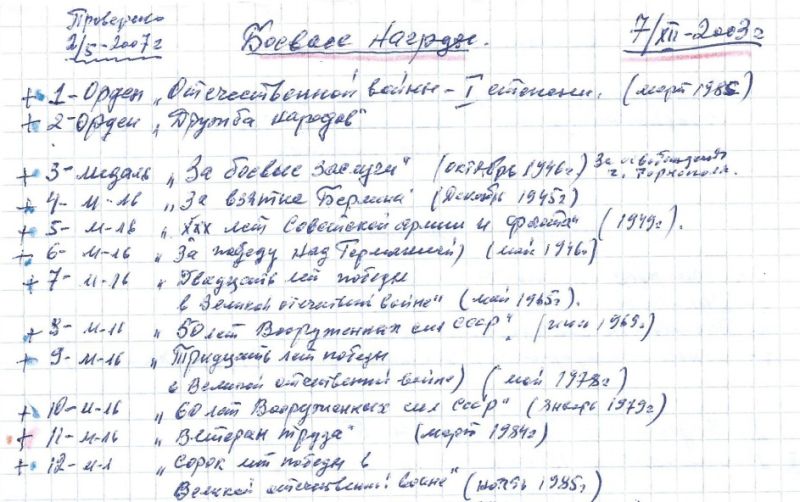 Проверено
2/5-2007г
Боевые награды.
7/XII-2003г
+ 1-Орден „Отечественной войны - I степени. (март 1985)
+ 2-Орден „Дружба народов"
+ 3-медаль „За боевые заслуги" (октябрь 1946г) За освобождения
г. Тернополя.
+ 4-м-ль „За взятие Берлина" (декабрь 1945г)
+ 5-м-ль „XXX лет Советской армии и флота" (1949г).
+ 6-м-ль „За победу над Германией) (май 1946г)
+ 7-м-ль „Двадцать лет победы
в Великой отечествен войне" (май 1965г).
+ 8-м-ль „50 лет Вооруженных сил СССР". (1969г)
+ 9-м-ль „Тридцать лет победы
в Великой отечественной войне) (май 1978г)
+ 10-м-ль „60 лет Вооруженных сил СССР" (январь 1979г)
+ 11-м-ль „Ветеран труда" (март 1984г)
+ 12-м-л „Сорок лет победы в
Великой отечественной войне" (1985г)